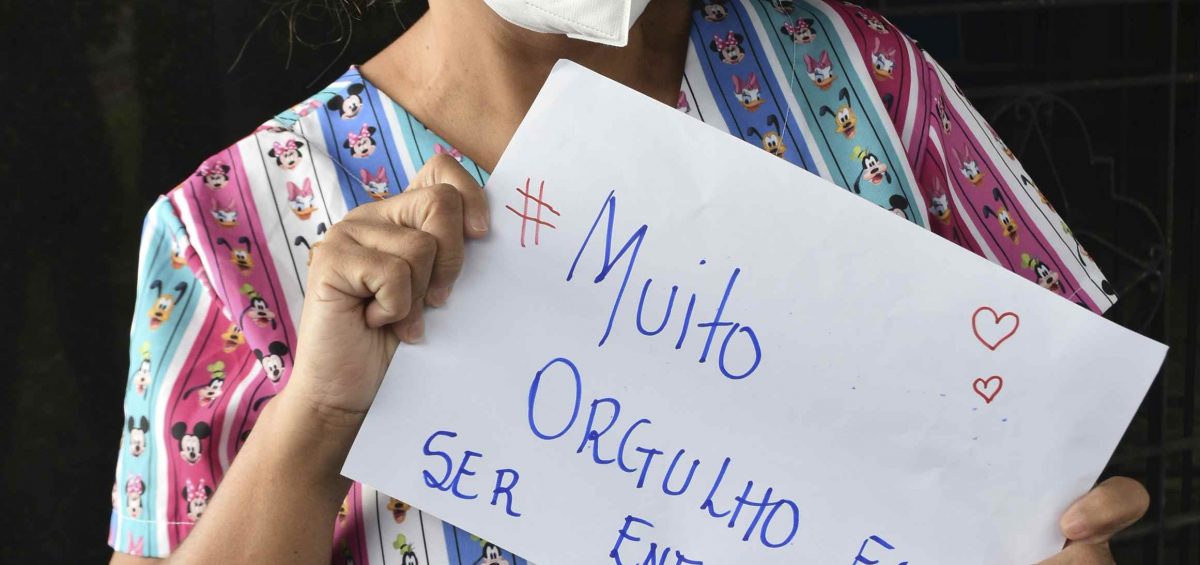 # Muito
ORGULHO
SER